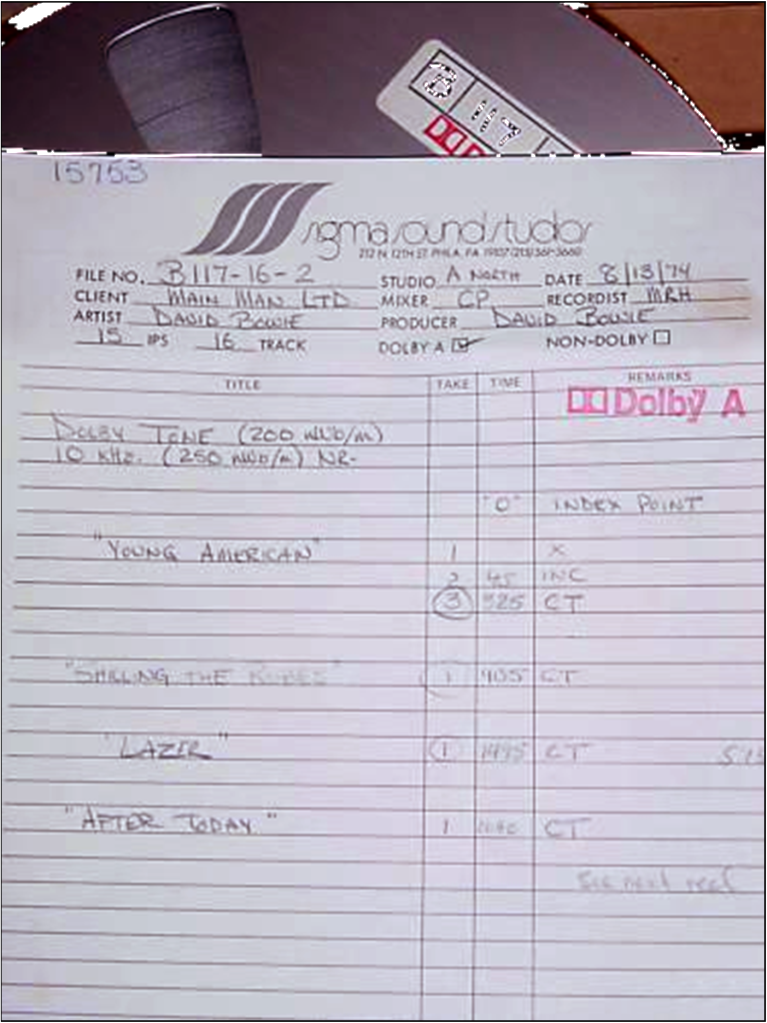 15753
sigma sound studios
212 N. 12TH ST. PHILA., PA. 19107 (215) 561-3660
FILE NO. B117-16-2 STUDIO A NORTH DATE 8/13/74
CLIENT MAIN MAN LTD MIXER CP RECORDIST MRH
ARTIST DAVID BOWIE PRODUCER DAVID BOWIE
15 IPS 16 TRACK DOLBY A NON-DOLBY
TITLE TAKE TIME REMARKS
Dolby A
DOLBY TONE (200 nWb/m)
10 KHz. (250 nWb/m) NR-
"0" INDEX POINT
"YOUNG AMERICAN" 1 X
2 45 INC
3 525 CT
"SHILLING THE RUBES" 1 905 CT
"LAZER" 1 CT
"AFTER TODAY" 1 CT
See next reel